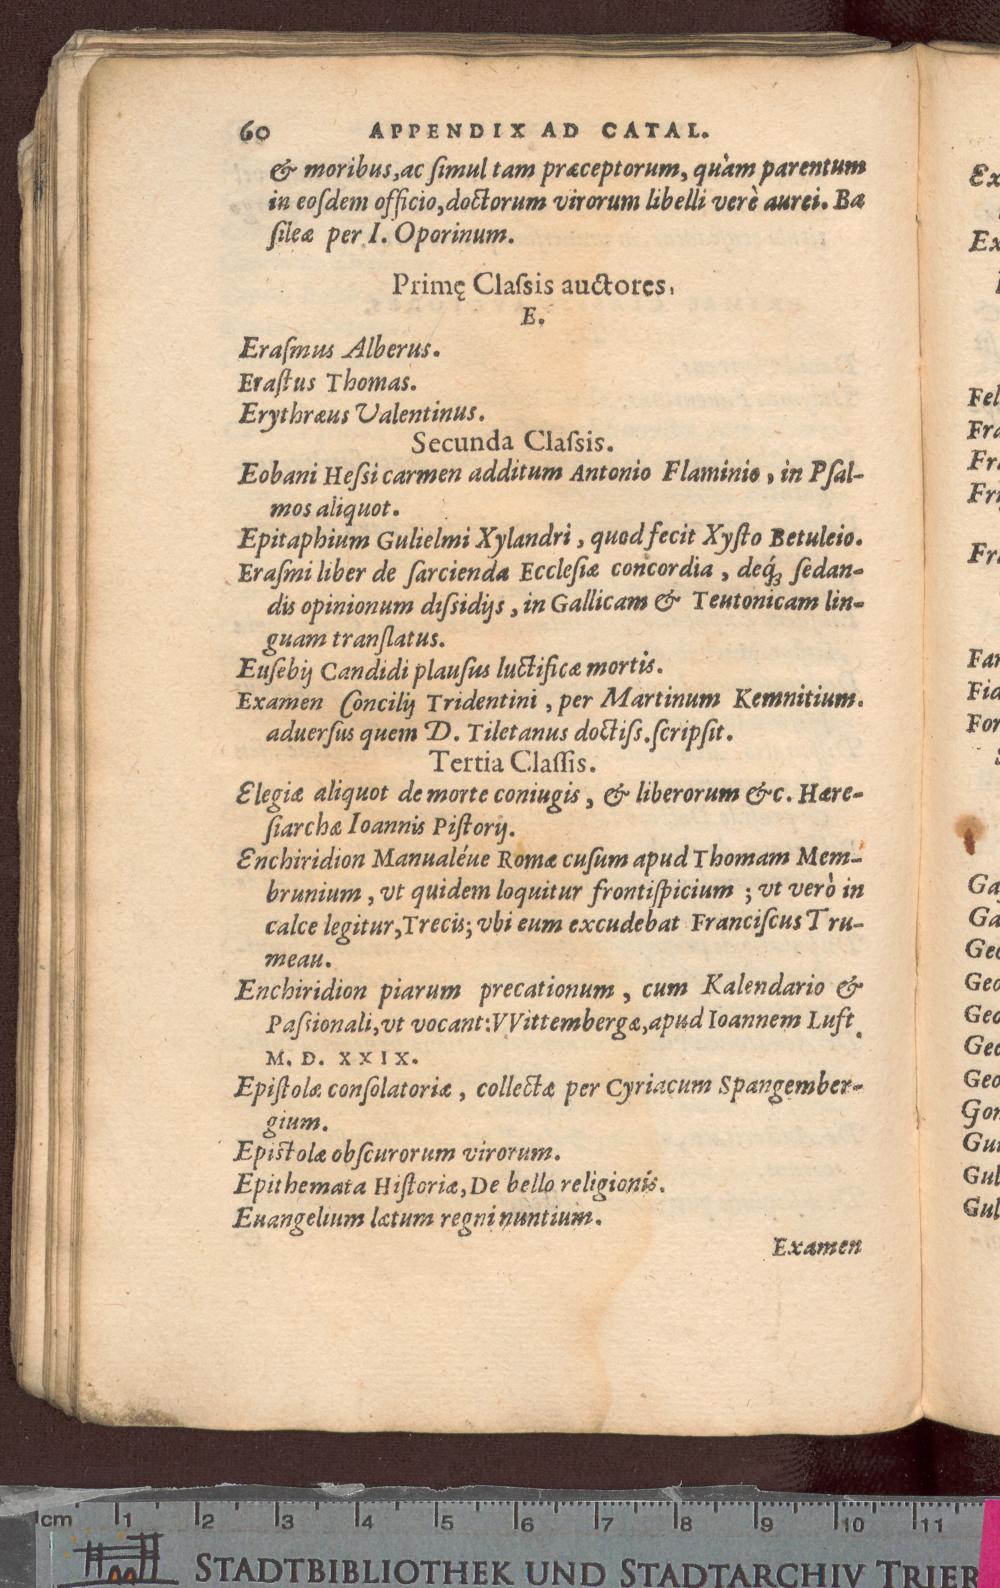 60 APPENDIX AD CATAL.
& moribus, ac ſimul tam præceptorum, quàm parentum
in eoſdem officio, doctorum virorum libelli verè aurei. Ba
ſileæ per I. Oporinum.
Primę Claſsis auctores,
E.
Eraſmus Alberus.
Eraſtus Thomas.
Erythræus Valentinus.
Secunda Claſsis.
Eobani Heſsi carmen additum Antonio Flaminio, in Pſal-
mos aliquot.
Epitaphium Gulielmi Xylandri, quod fecit Xyſto Betuleio.
Eraſmi liber de ſarcienda Eccleſiæ concordia, deq́ꝫ ſedan-
dis opinionum diſsidijs, in Gallicam & Teutonicam lin-
guam tranſlatus.
Euſebij Candidi plauſus luctificæ mortis.
Examen Concilij Tridentini, per Martinum Kemnitium.
aduerſus quem D. Tiletanus doctiſs. ſcripſit.
Tertia Claſſis.
Elegiæ aliquot de morte coniugis, & liberorum &c. Hære-
ſiarchæ Ioannis Piſtorij.
Enchiridion Manualéue Romæ cuſum apud Thomam Mem-
brunium, vt quidem loquitur frontiſpicium; vt verò in
calce legitur, Trecis; vbi eum excudebat Franciſcus Tru-
meau.
Enchiridion piarum precationum, cum Kalendario &
Paſsionali, vt vocant: VVittembergæ, apud Ioannem Luft.
M. D. XXIX.
Epiſtolæ conſolatoriæ, collectæ per Cyriacum Spangember-
gium.
Epiſtolæ obſcurorum virorum.
Epithemata Hiſtoriæ, De bello religionis.
Euangelium lætum regni nuntium.
Examen
Ex
Ex
Fel
Fra
Fr
Fri
Fr
Far
Fid
For
Ga
Ga
Geo
Geo
Geo
Geo
Geo
Gor
Gui
Gul
Gul
cm 1 2 3 4 5 6 7 8 9 10 11
STADTBIBLIOTHEK UND STADTARCHIV TRIER